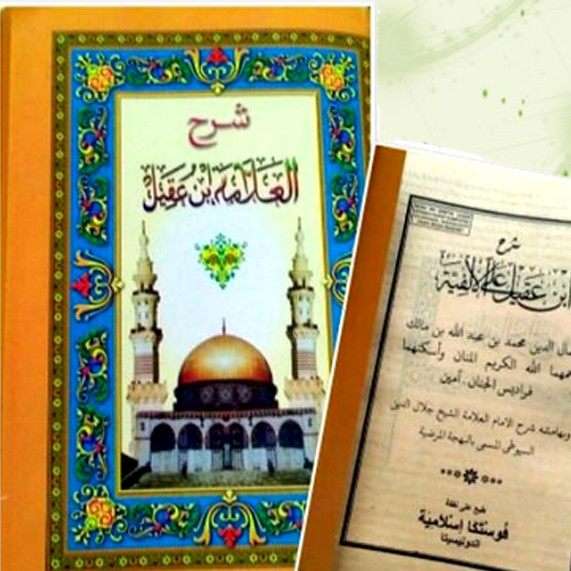 شرح
العلامة ابن عقيل
شرح
ابن عقيل على الالفية
ال الدين محمد بن عبد الله بن مالك
هما الله الكريم المنان وأسكنهما
فراديس الجنان. آمين
وبهامشه شرح الامام العلامة الشيخ جلال الدين
السيوطى المسمى بالبهجة المرضية
طبع على نفقة
فوستكا إسلامية
اندونيسيا